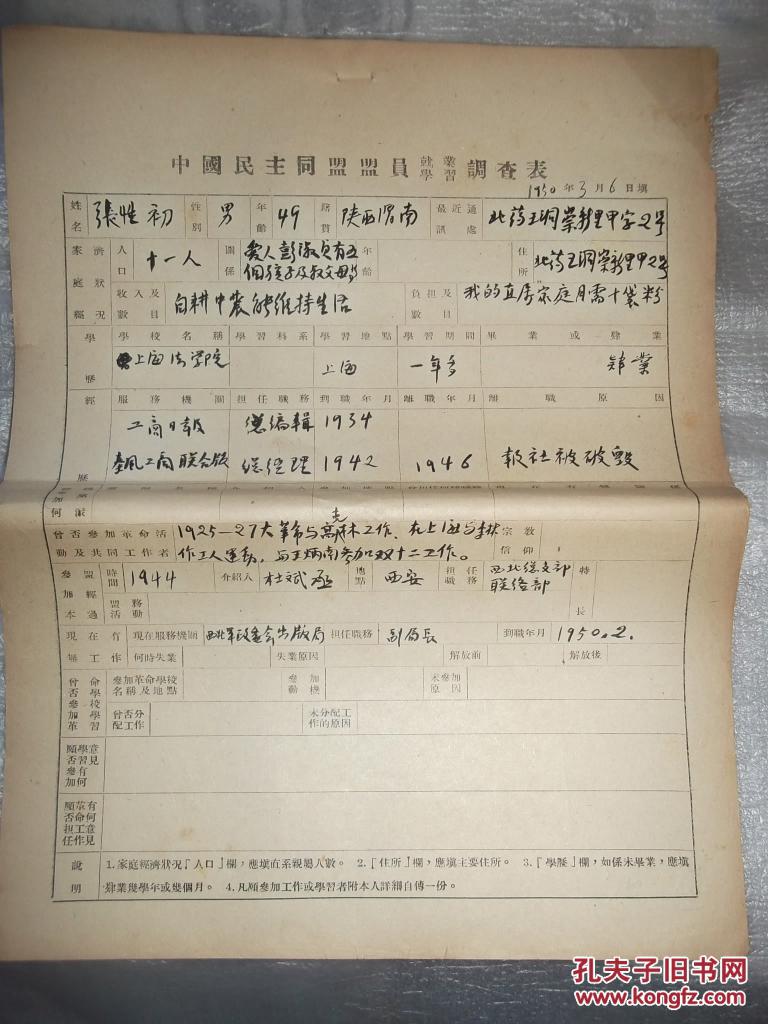 中國民主同盟盟員就業學習調查表
1950年3月6日填
姓名 張性初 性別 男 年齡 49 籍貫 陕西渭南 最近通訊處 北药王洞崇新里甲字2号
家庭經濟狀況 人口 十一人 關係 爱人彭淑贞有五個孩子及叔父母等 年齡 住所 北药王洞崇新里甲2号
收入及數目 自耕中農能維持生活 負担及數目 我的直屬家庭月需十袋粉
學歷 學校名稱 學習科系 學習地點 學習期間 畢業或肄業
上海法學院 上海 一年多 肄業
經歷 服務機關 担任職務 到職年月 離職年月 離職原因
工商日報 總編輯 1934
秦风工商联合版 總經理 1942 1946 報社被破毁
曾否參加革命活動及共同工作者 1925-27大革命与高克林工作、在上海与 作工人運動，与王炳南參加双十二工作。 宗教信仰
參加本盟經過 時間 1944 介紹人 杜斌丞 地點 西安 担任職務 西北總支部联络部 特長
盟務活動
現在有 現在服務機關 西北軍政委会出版局 担任職務 副局長 到職年月 1950.2.
無工作 何時失業 失業原因 解放前 解放後
曾否參加革命學校學習 參加革命學校名稱及地點 參加動機 未參加原因
曾否分配工作 未分配工作的原因
願否參加學習有何意見
願否担任革命工作有何意見
說明 1.家庭經濟狀況「人口」欄，應填直系親屬人數。 2.「住所」欄，應填主要住所。 3.「學歷」欄，如係未畢業，應填
肄業幾學年或幾個月。 4.凡願參加工作或學習者附本人詳細自傳一份。
孔夫子旧书网
www.kongfz.com